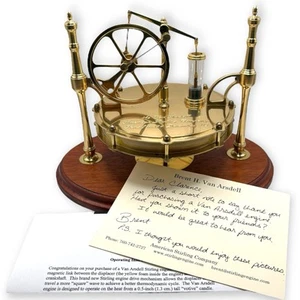 Brent H. Van Arsdell
Dear Clarence,
Just a short note to say thank you
for purchasing a Van Arsdell engine.
Have you shown it to your friends?
I would be great to hear from you.
Brent
P.S. I thought you would enjoy these pictures.
American Stirling Company
www.stirlingengine.com
Operating
Congratulations on your purchase of a Van Arsdell Stirling engine
magnetic link between the displacer (the yellow foam inside the engine
crankshaft. This brand new Stirling engine drive
travel a more "square" wave to achieve a better thermodynamic cycle. The Van Arsdell
engine is designed to operate on the heat from a 0.5-inch (1.3 cm.) tall "votive" candle.